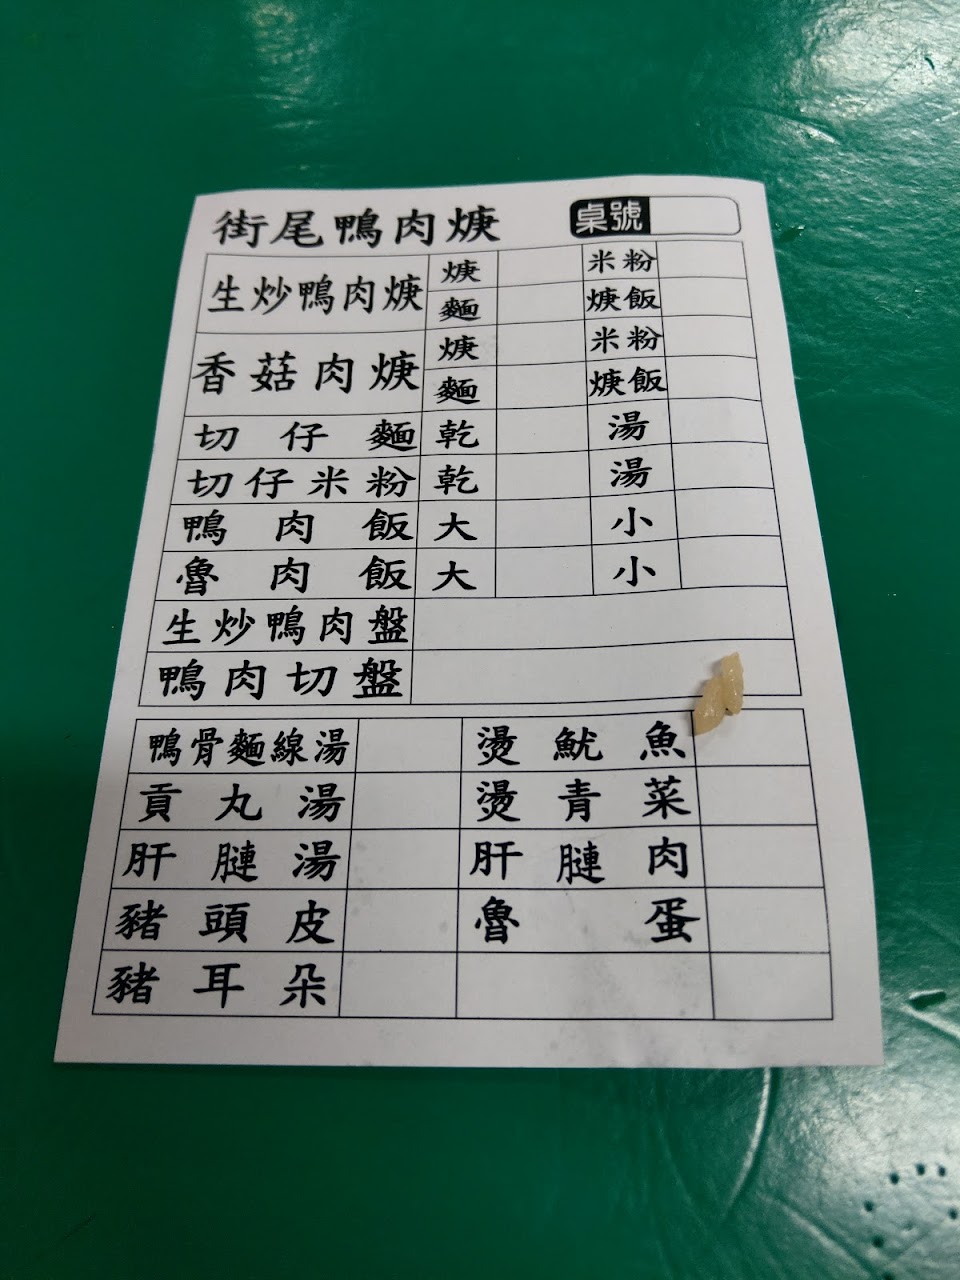 街尾鴨肉焿 桌號
生炒鴨肉焿 焿 米粉
麵 焿飯
香菇肉焿 焿 米粉
麵 焿飯
切仔麵 乾 湯
切仔米粉 乾 湯
鴨肉飯 大 小
魯肉飯 大 小
生炒鴨肉盤
鴨肉切盤
鴨骨麵線湯 燙魷魚
貢丸湯 燙青菜
肝膯湯 肝膯肉
豬頭皮 魯蛋
豬耳朵